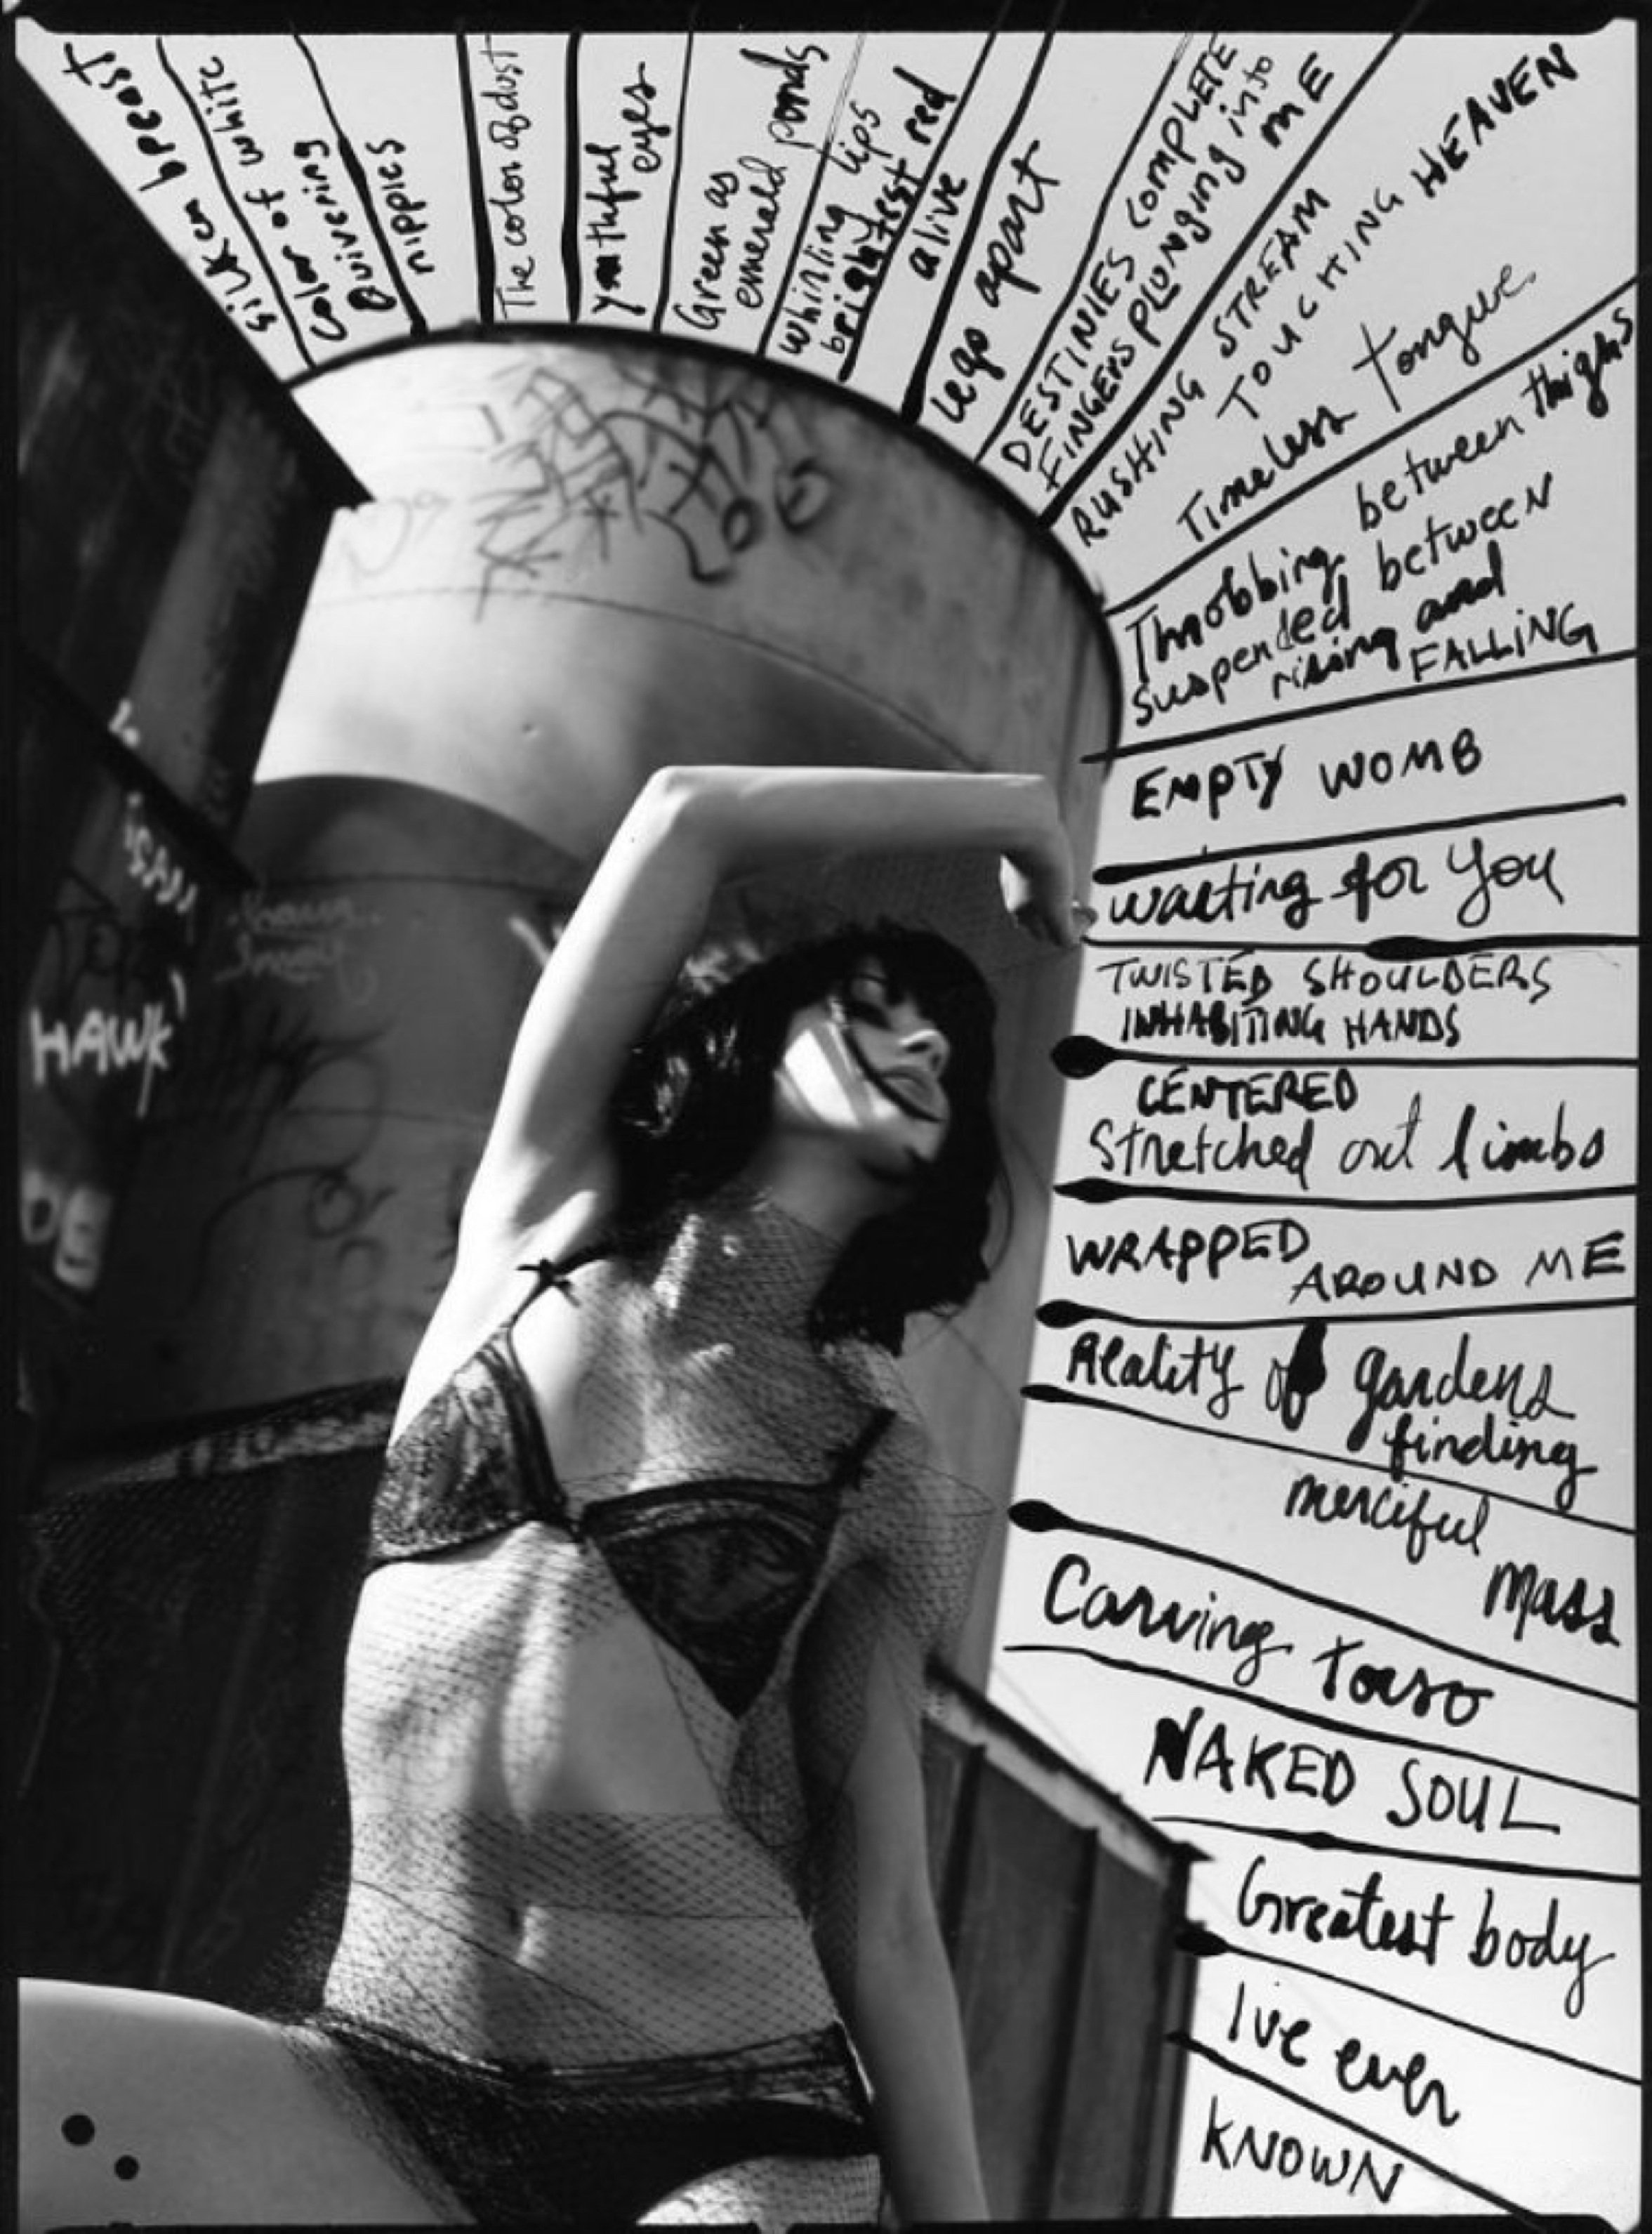 silken breast
color of white
Quivering
nipples
The color of dust
youthful
eyes
Green as
emerald ponds
whirling lips
brightest red
alive
legs apart
DESTINIES COMPLETE
FINGERS PLUNGING into
ME
RUSHING STREAM
TOUCHING HEAVEN
Timeless tongue
Throbbing between thighs
suspended between
rising and
FALLING
EMPTY WOMB
waiting for you
TWISTED SHOULDERS
INHABITING HANDS
CENTERED
Stretched out limbs
WRAPPED AROUND ME
Reality of gardens
finding
merciful
mass
Carving torso
NAKED SOUL
Greatest body
I've ever
KNOWN
HAWK